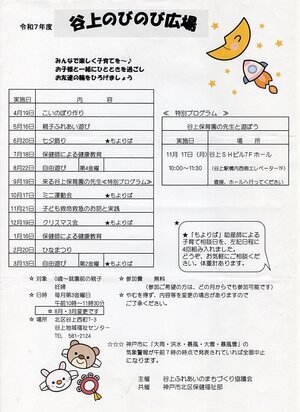 令和7年度
谷上のびのび広場
みんなで楽しく子育てを～♪
お子様と一緒にひとときを過ごし
お友達の輪をひろげましょう
実施日 内 容
4月19日 こいのぼり作り
5月16日 親子ふれあい遊び
6月20日 七夕飾り ★もよりば
7月18日 保健師による健康教育
8月22日 自由遊び 第4金曜
9月19日 来る谷上保育園の先生≪特別プログラム≫
10月17日 ミニ運動会 ★もよりば
11月21日 子ども救命救急のお話と実践
12月19日 クリスマス会 ★もよりば
1月16日 保健師による健康教育
2月20日 ひなまつり
3月13日 自由遊び 第2金曜 ★もよりば
≪ 特別プログラム ≫
実施日 谷上保育園の先生と遊ぼう
11月17日(月)
10:00～11:30
谷上SHビル7Fホール
(谷上駅構内西側エレベーター下)
直接、ホールへ行ってください
★「もよりば」助産師による
子育て相談日を、左記日程に
4回組み入れました。
どうぞ、お気軽にご相談くだ
さい。体重計あります。
☆ 対象 0歳～就園前の親子
妊婦
☆ 参加費 無料
(参加ご希望の方は、どの月からでも参加可能です)
☆ 日時 毎月第3金曜日
午前10時～11時30分
☆ 8月・3月変更です
☆ やむを得ず、内容等を変更の場合がありますので
ご了承ください。
☆ 場所 北区谷上西町7-3
谷上地域福祉センター
TEL 581-2124
☆☆☆ 神戸市に「大雨・洪水・暴風・大雪・暴風雪」の
気象警報が午前7時の時点で発表されていれば全面中止
になります。
主催 谷上ふれあいのまちづくり協議会
共催 神戸市北区保健福祉部